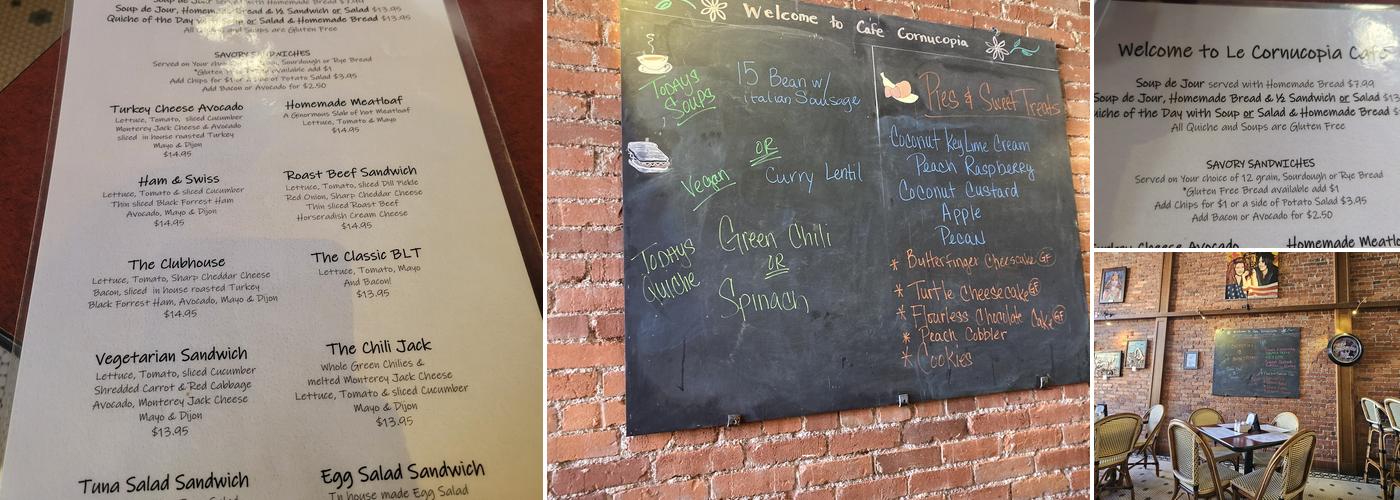 Soup de Jour served with Homemade Bread $7.99
Soup de Jour, Homemade Bread & ½ Sandwich or Salad $13.95
Quiche of the Day with Soup or Salad & Homemade Bread $13.95
All Quiche and Soups are Gluten Free
SAVORY SANDWICHES
Served on Your choice of 12 grain, Sourdough or Rye Bread
*Gluten Free Bread available add $1
Add Chips for $1 or a side of Potato Salad $3.95
Add Bacon or Avocado for $2.50
Turkey Cheese Avocado
Lettuce, Tomato, sliced Cucumber
Monterey Jack Cheese & Avocado
sliced in house roasted Turkey
Mayo & Dijon
$14.95
Homemade Meatloaf
A Ginormous Slab of Hot Meatloaf
Lettuce, Tomato & Mayo
$14.95
Ham & Swiss
Lettuce, Tomato & sliced Cucumber
Thin sliced Black Forrest Ham
Avocado, Mayo & Dijon
$14.95
Roast Beef Sandwich
Lettuce, Tomato, sliced Dill Pickle
Red Onion, Sharp Cheddar Cheese
Thin sliced Roast Beef
Horseradish Cream Cheese
$14.95
The Clubhouse
Lettuce, Tomato, Sharp Cheddar Cheese
Bacon, sliced in house roasted Turkey
Black Forrest Ham, Avocado, Mayo & Dijon
$14.95
The Classic BLT
Lettuce, Tomato, Mayo
And Bacon!
$13.95
Vegetarian Sandwich
Lettuce, Tomato, sliced Cucumber
Shredded Carrot & Red Cabbage
Avocado, Monterey Jack Cheese
Mayo & Dijon
$13.95
The Chili Jack
Whole Green Chilies &
melted Monterey Jack Cheese
Lettuce, Tomato & sliced Cucumber
Mayo & Dijon
$13.95
Tuna Salad Sandwich
Egg Salad Sandwich
In house made Egg Salad
Welcome to Cafe Cornucopia
Todays
Soups
15 Bean w/
italian Sausage
OR
Vegan
Curry Lentil
Todays
Quiche
Green Chili
OR
Spinach
Pies & Sweet Treats
Coconut Key Lime Cream
Peach Raspberry
Coconut Custard
Apple
Pecan
* Butterfinger Cheesecake GF
* Turtle Cheesecake GF
* Flourless Chocolate Cake GF
* Peach Cobbler
* Cookies
Welcome to Le Cornucopia Cafe
Soup de Jour served with Homemade Bread $7.99
Soup de Jour, Homemade Bread & ½ Sandwich or Salad $13
uiche of the Day with Soup or Salad & Homemade Bread $
All Quiche and Soups are Gluten Free
SAVORY SANDWICHES
Served on Your choice of 12 grain, Sourdough or Rye Bread
*Gluten Free Bread available add $1
Add Chips for $1 or a side of Potato Salad $3.95
Add Bacon or Avocado for $2.50
Turkey Cheese Avocado
Homemade Meatlo